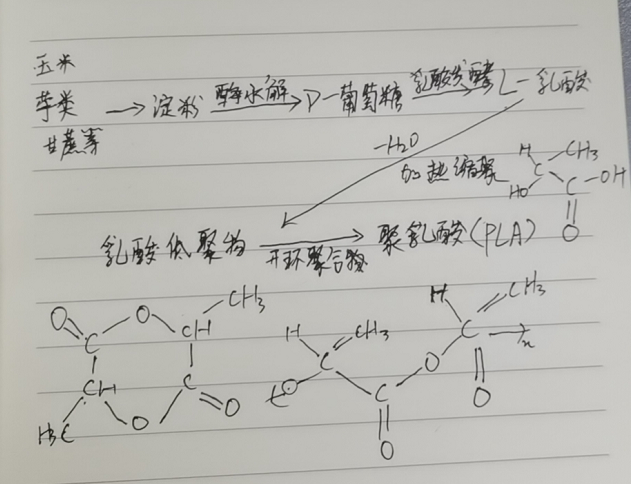 玉米
芋类 → 淀粉 酶水解 D-葡萄糖 乳酸发酵 L-乳酸
甘蔗等
-H2O
加热缩聚
H CH3
C
HO C-OH
O
乳酸低聚物 开环聚合 聚乳酸(PLA)
CH3
O O CH
C
CH C
O O
H3C
H CH3
C
O C O
O
H CH3
C
C n
O